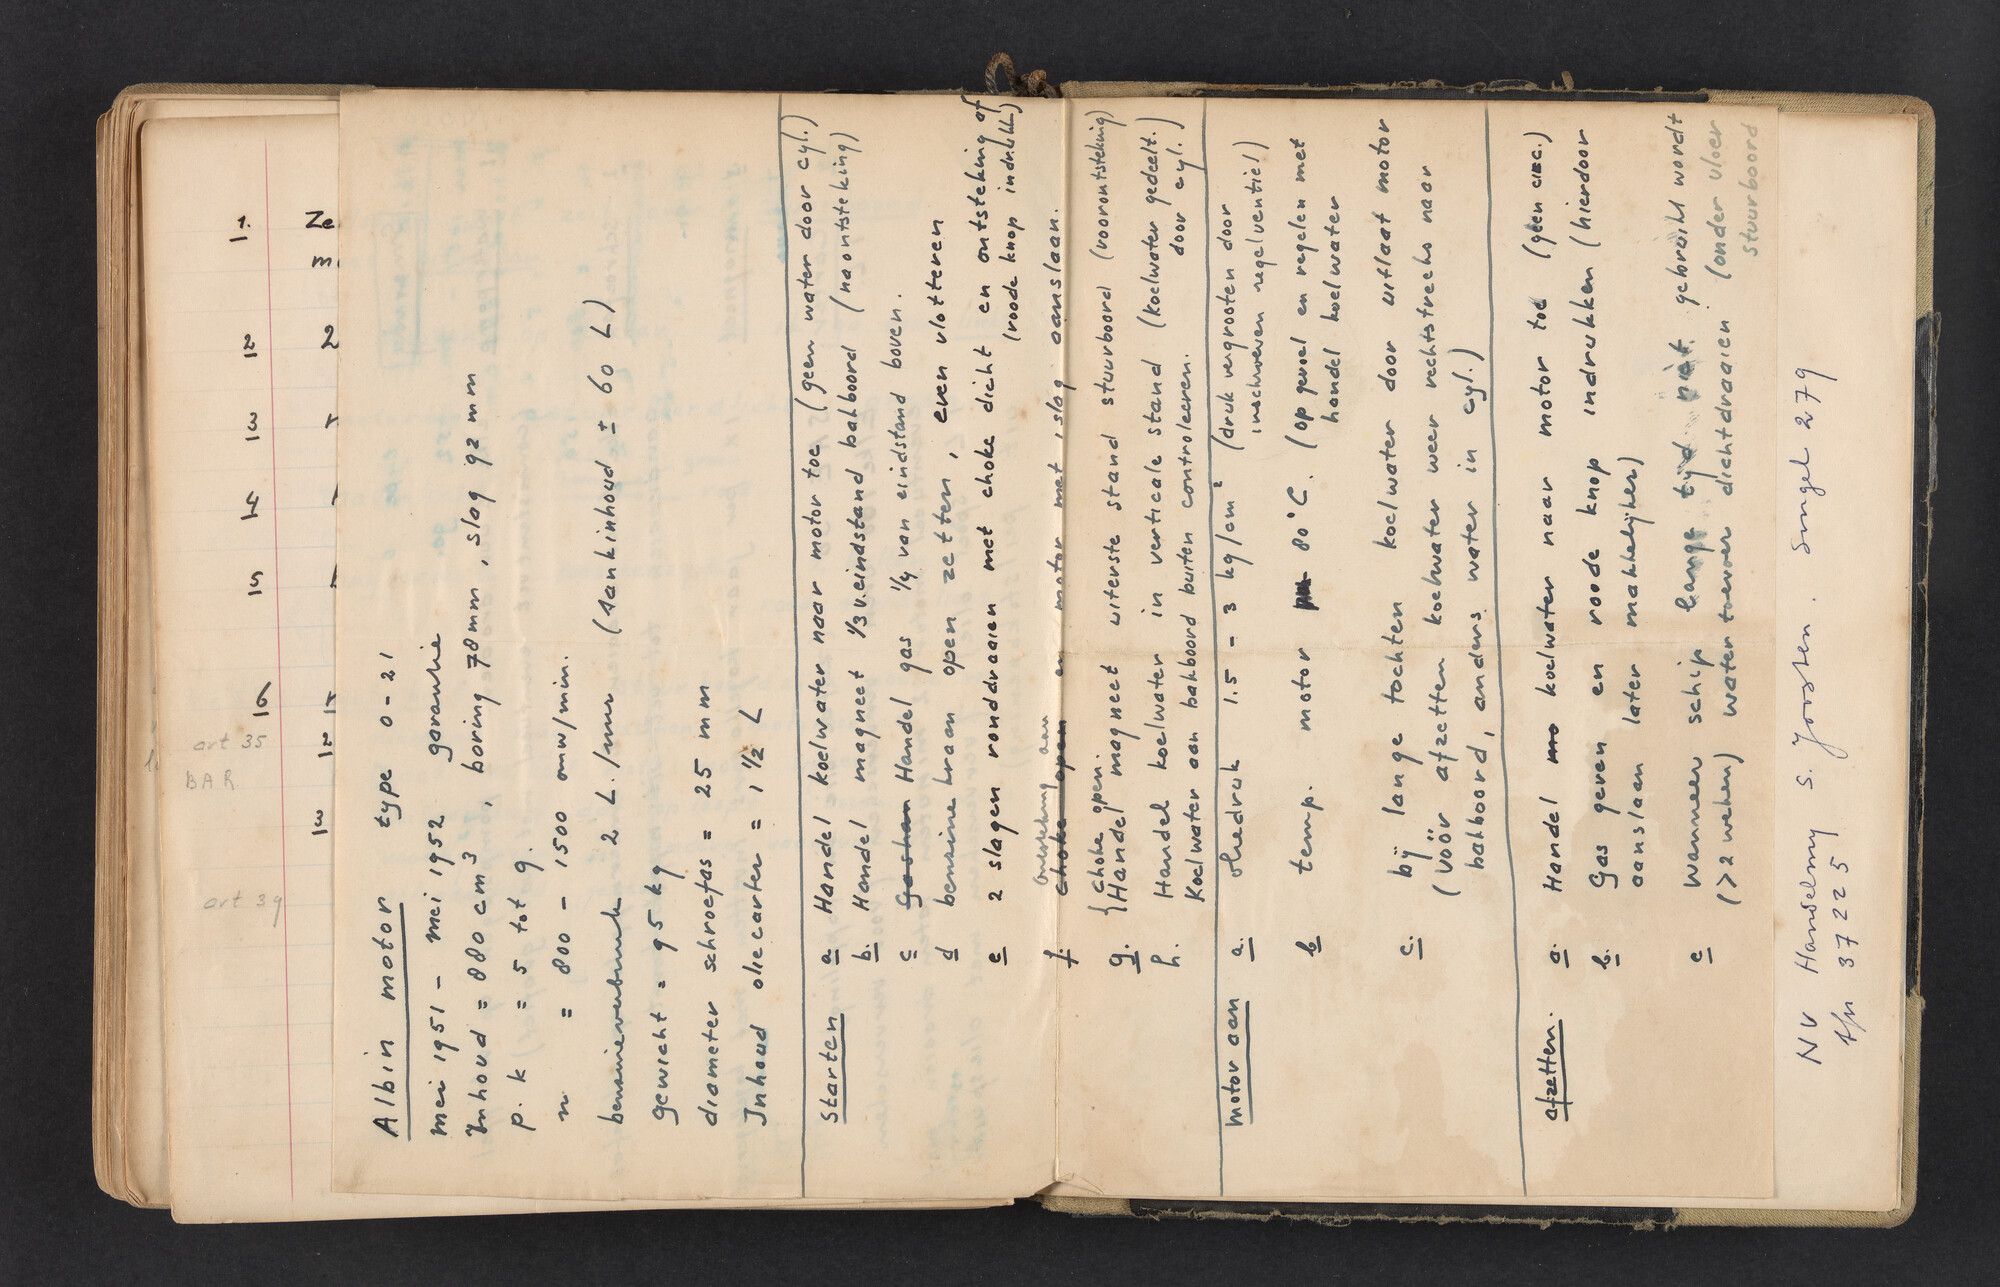 Albin motor type O-21
mei 1951 - mei 1952 garantie
Inhoud = 880 cm3, boring 78 mm, slag 92 mm
p.k = 5 tot 9.
n = 800 - 1500 omw/min.
benzineverbruik 2 L./uur (tankinhoud ± 60 L)
gewicht = 95 kg
diameter schroefas = 25 mm
Inhoud oliecarter = 1 1/2 L
Starten
a. Handel koelwater naar motor toe (geen water door cyl.)
b. Handel magneet 1/3 v. eindstand bakboord (naontsteking)
c Gashan Handel gas 1/4 van eindstand boven.
d benzinekraan open zetten, even vlotteren
e 2 slagen ronddraaien met choke dicht en ontsteking af
(roode knop indrukken)
ontsteking aan
f. choke open en motor met 1 slag aanslaan.
{ choke open.
g. Handel magneet uiterste stand stuurboord (voorontsteking)
h. Handel koelwater in verticale stand (koelwater gedeelt.
door cyl.)
Koelwater aan bakboord buiten controleeren.
motor aan
a. oliedruk 1.5 - 3 kg/cm2 (druk vergrooten door
inschroeven regelventiel)
b temp. motor 80°C. (op gevoel en regelen met
handel koelwater
c. bij lange tochten koelwater door uitlaat motor
(vóór afzetten koelwater weer rechtstreeks naar
bakboord, anders water in cyl.)
afzetten.
a. Handel koelwater naar motor toe (geen circ.)
b. Gas geven en roode knop indrukken (hierdoor
aanslaan later makkelijker)
c wanneer schip lange tijd niet gebruikt wordt
(> 2 weken) watertoevoer dichtdraaien (onder vloer
stuurboord
NV Handelmy S. Joosten. Singel 279
tfn 37225
art 35
BAR
art 39
1.
Ze
m
2
2
3
4
5
6
2
3